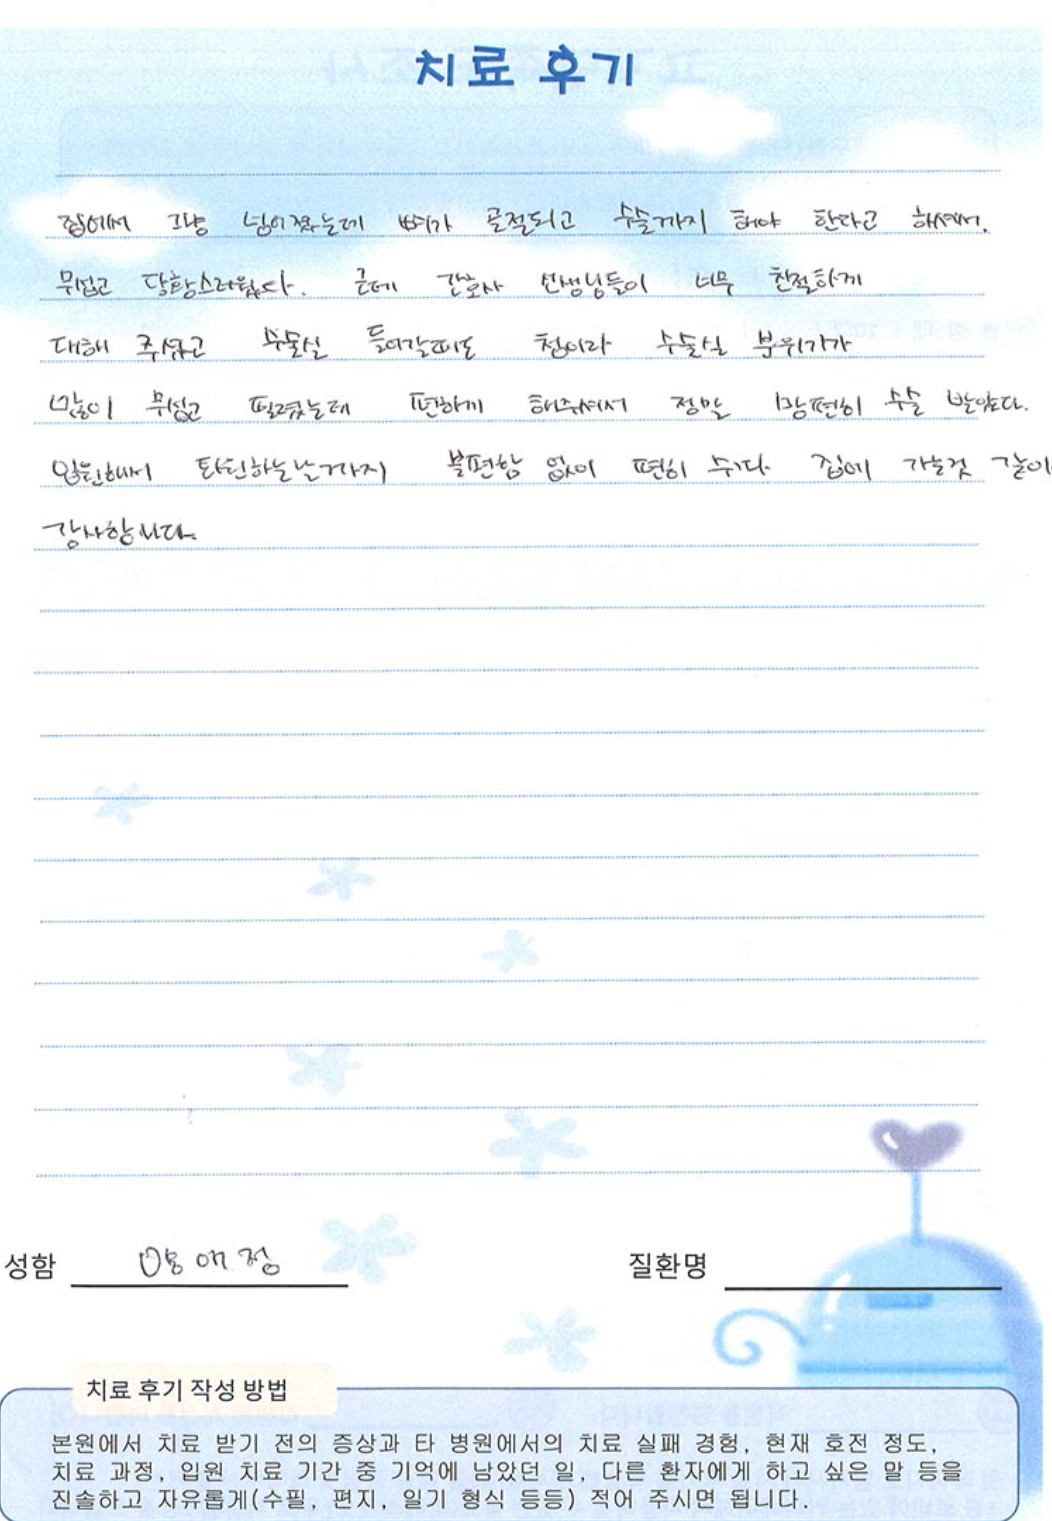 치료 후기
집에서 그냥 넘어졌는데 뼈가 골절되고 수술까지 해야 한다고 하셔서.
무섭고 당황스러웠다. 근데 간호사 선생님들이 너무 친절하게
대해 주셨고 수술실 들어갈때도 첨이라 수술실 분위기가
많이 무섭고 떨렸는데 편하게 해주셔서 정말 맘편히 수술 받았다.
입원해서 퇴원하는날까지 불편함 없이 편히 쉬다 집에 가는것 같아
감사합니다.
성함 양애정
질환명
치료 후기 작성 방법
본원에서 치료 받기 전의 증상과 타 병원에서의 치료 실패 경험, 현재 호전 정도,
치료 과정, 입원 치료 기간 중 기억에 남았던 일, 다른 환자에게 하고 싶은 말 등을
진솔하고 자유롭게(수필, 편지, 일기 형식 등등) 적어 주시면 됩니다.